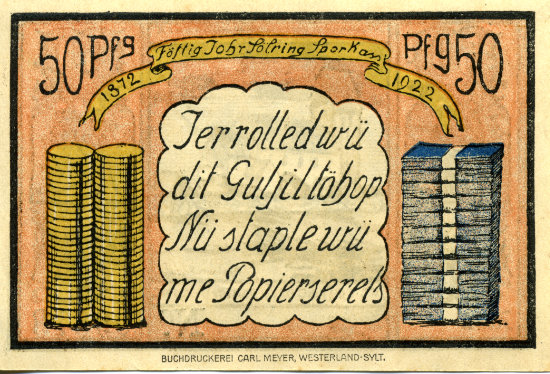 50 Pfg
Pfg 50
Föftig Johr Sölring Sporkas
1872
1922
Jerrolled wü
dit Guljil töhop
Nü staple wü
me Popierserels
BUCHDRUCKEREI CARL MEYER, WESTERLAND-SYLT.